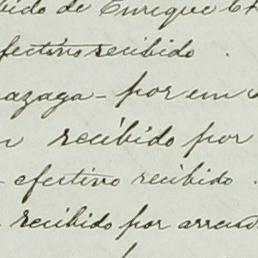 bido de Enrique
efectivo recibido .
azaga - por em
recibido por
- efectivo recibido .
recibido por arrend